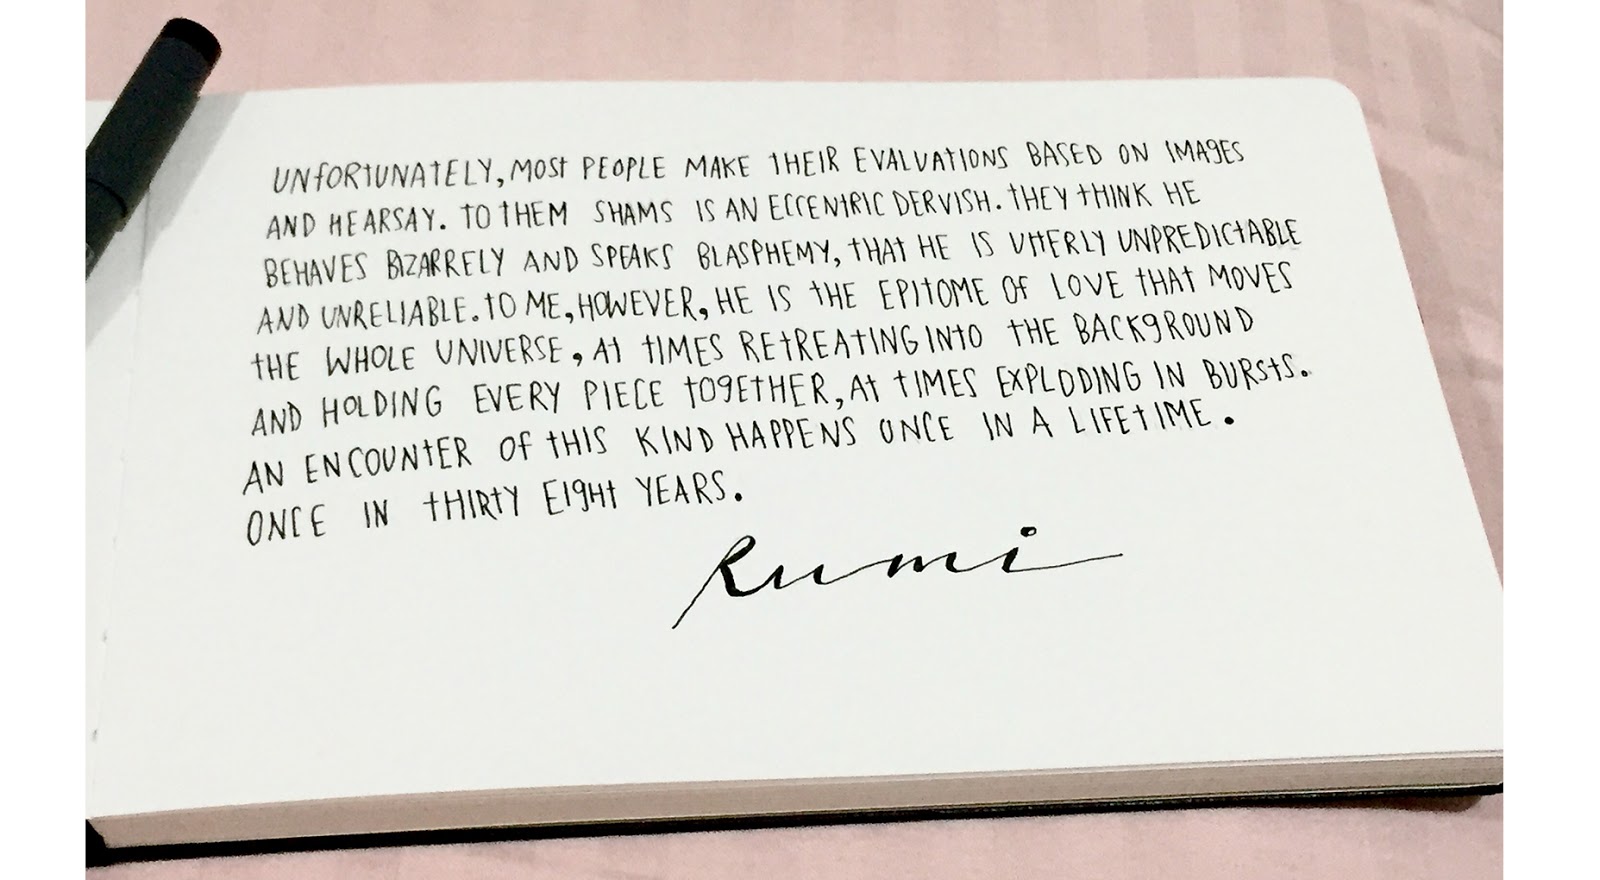 UNFORTUNATELY, MOST PEOPLE MAKE THEIR EVALUATIONS BASED ON IMAGES
AND HEARSAY. TO THEM SHAMS IS AN ECCENTRIC DERVISH. THEY THINK HE
BEHAVES BIZARRELY AND SPEAKS BLASPHEMY, THAT HE IS UTTERLY UNPREDICTABLE
AND UNRELIABLE. TO ME, HOWEVER, HE IS THE EPITOME OF LOVE THAT MOVES
THE WHOLE UNIVERSE, AT TIMES RETREATING INTO THE BACKGROUND
AND HOLDING EVERY PIECE TOGETHER, AT TIMES EXPLODING IN BURSTS.
AN ENCOUNTER OF THIS KIND HAPPENS ONCE IN A LIFETIME.
ONCE IN THIRTY EIGHT YEARS.
Rumi